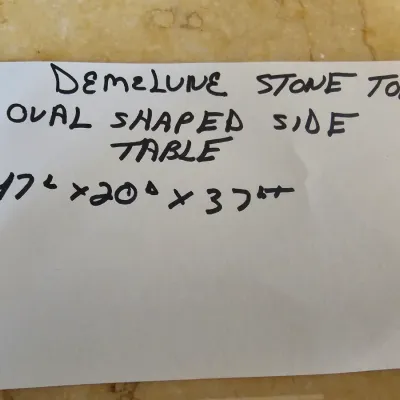 DEMELUNE STONE TO
OVAL SHAPED SIDE
TABLE
47L x 20D x 37HT